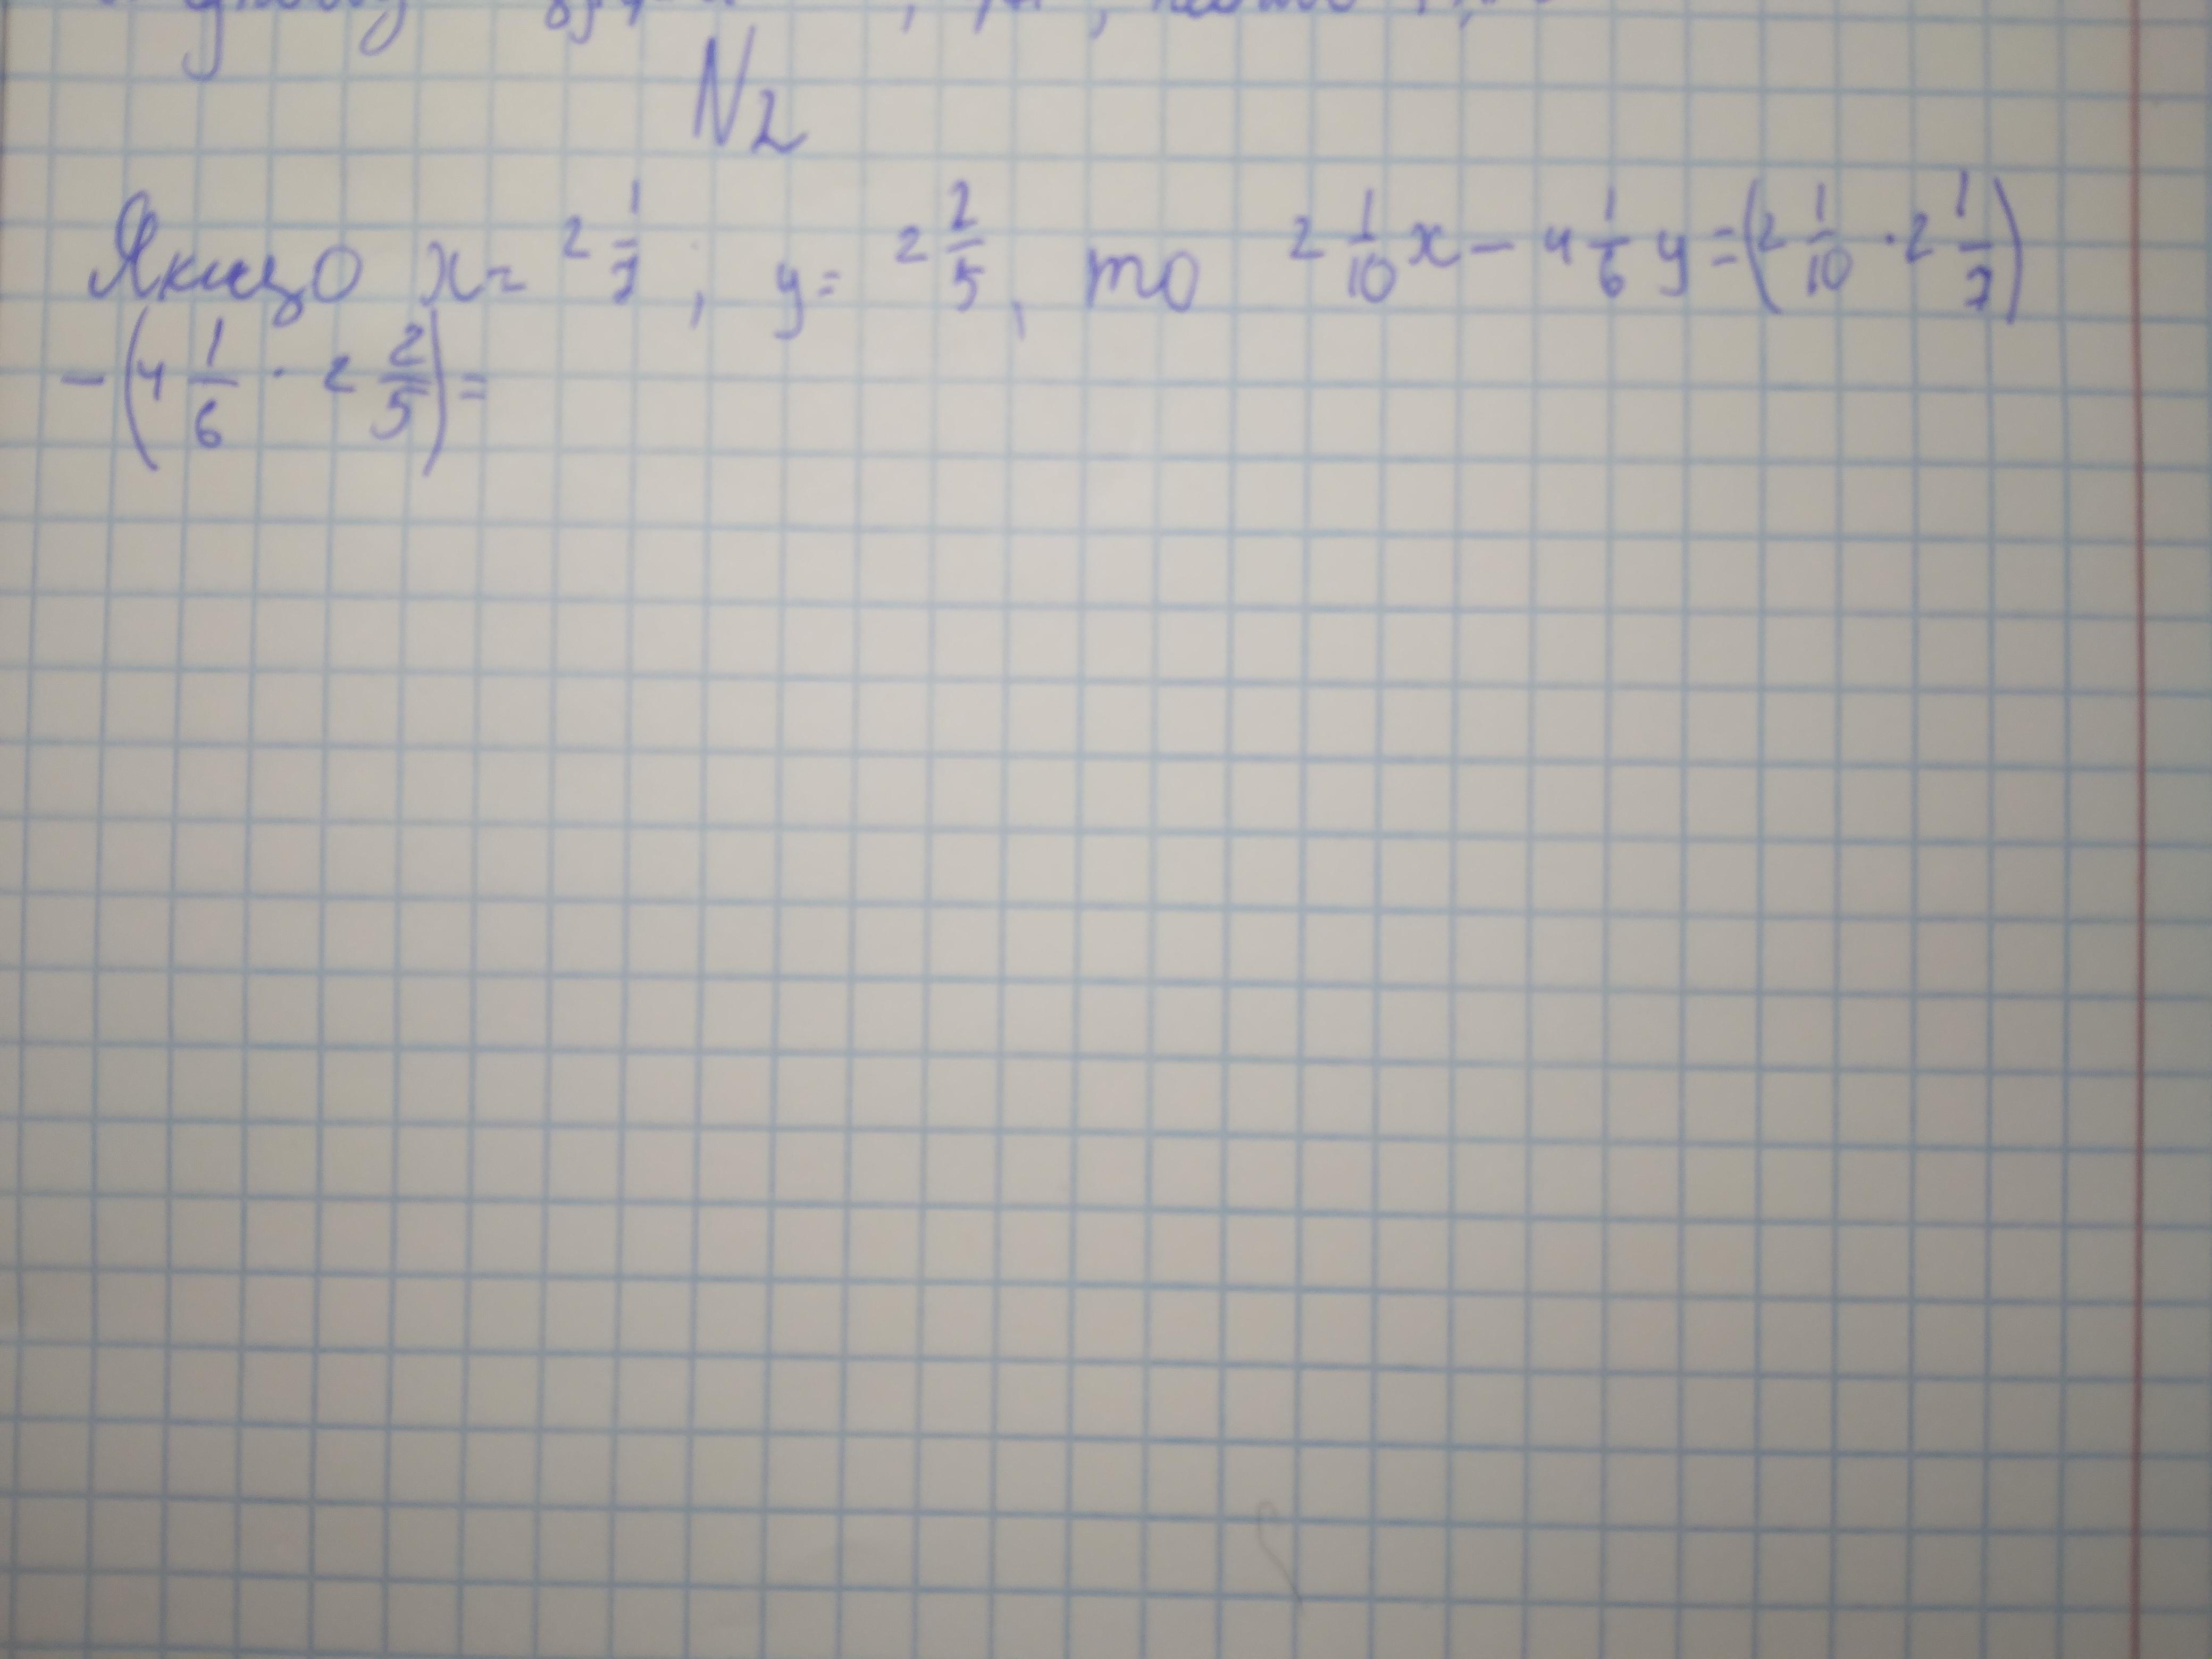 N2
Якщо x= 2 1/7; y= 2 2/5, то 2 1/10 x - 4 1/6 y = (2 1/10 · 2 1/7)
- (4 1/6 · 2 2/5) =